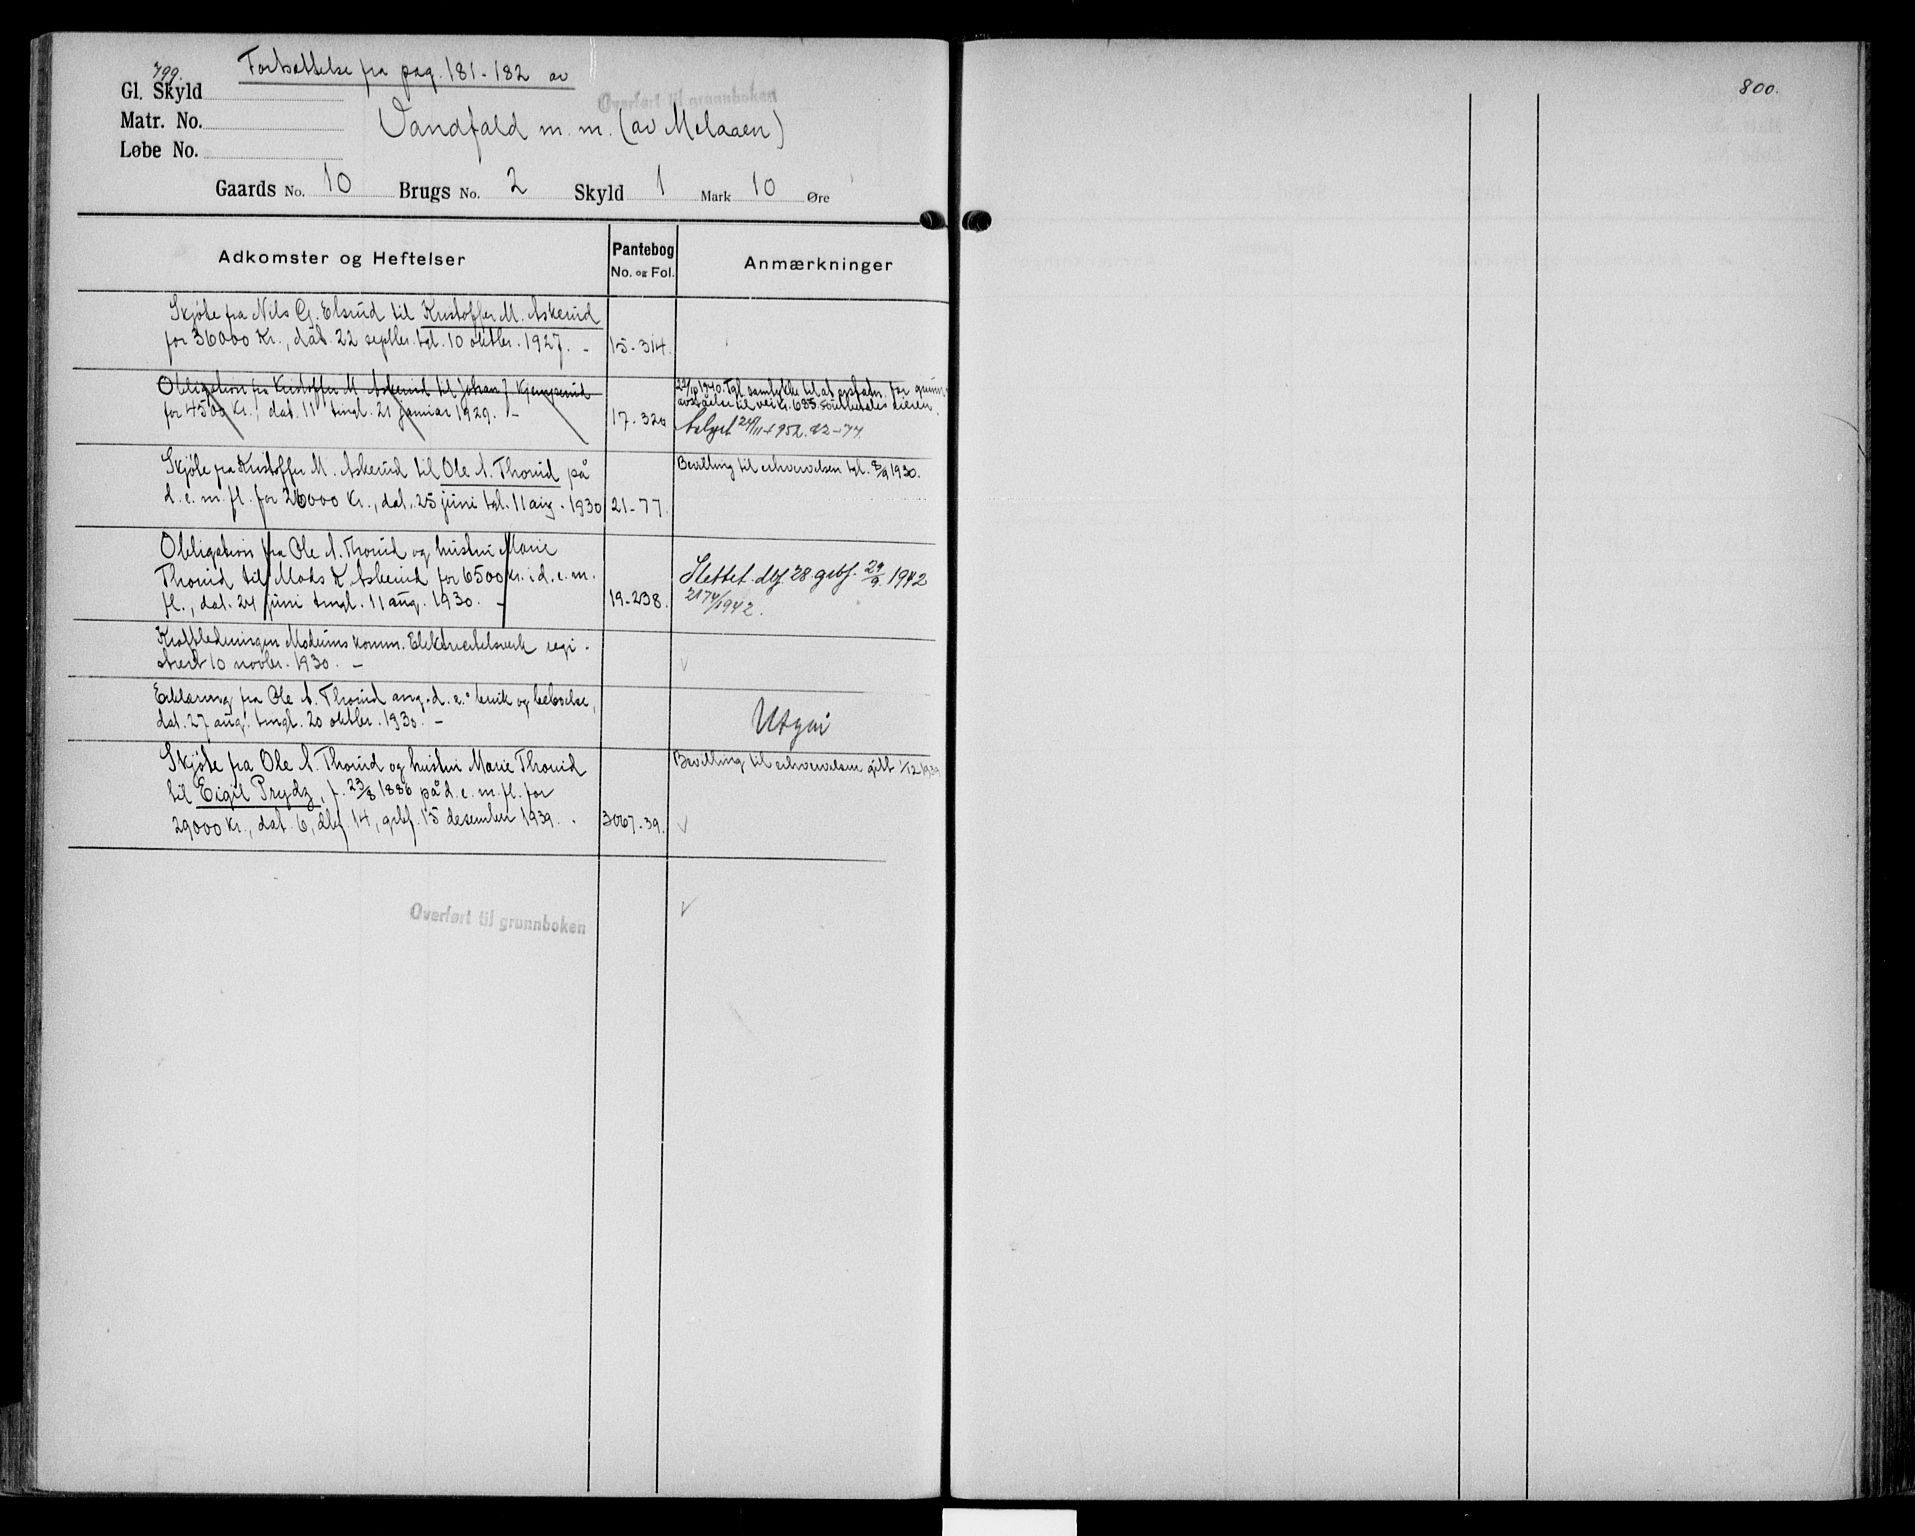 799.
Fortsettelse fra pag. 181-182 av
Gl. Skyld
Overført til grunnboken
Matr. No.
Vandfald m. m. (av Melaaen)
Løbe No.
Gaards No. 10 Brugs No. 2 Skyld 1 Mark 10 Øre
Adkomster og Heftelser
Pantebog
No. og Fol.
Anmærkninger
Skjøte fra Nils G. Elsrud til Kristoffer M. Askerud
for 36000 Kr., dat. 22 septbr. tgl. 10 oktbr. 1927. -
15-314.
Obligation fra Kristoffer M. Askerud til Johan J. Kjemperud
for 4500 kr., dat. 11 tingl. 21 januar 1929. -
17-320
samtykke til at erstatn. for grunn
avståelse til vei kr. 635 utbetales eieren.
Avlyst 24/11 1952.
Skjøte fra Kristoffer M. Askerud til Ole A. Thorud på
d. e. m. fl. for 26000 Kr., dat. 25 juni tgl. 11 aug. 1930
21-77.
Bevilling til erhvervelsen tgl. 8/9 1930.
Obligation fra Ole A. Thorud og hustru Marie
Thorud til Mads K. Askerud for 6500 kr. i d. e. m.
fl., dat. 24 juni tingl. 11 aug. 1930. -
19-238.
Slettet. dbf. 28. gebf. 29/9. 1942
2174/1942.
Kraftledningen Modums komm. Elektrisitetsverk regi-
strert 10 novbr. 1930. -
Erklæring fra Ole A. Thorud ang. d. e.s bruk og beboelse,
dat. 27 aug. tingl. 20 oktbr. 1930. -
Utgår
Skjøte fra Ole A. Thorud og hustru Marie Thorud
til Eigil Prydz, f. 23/8 1886 på d. e. m. fl. for
29000 Kr., dat. 6, dbf. 14, gebf. 15 desember 1939.
3067-39.
Bevilling til erhvervelsen gitt 1/12 1939
Overført til grunnboken
800.